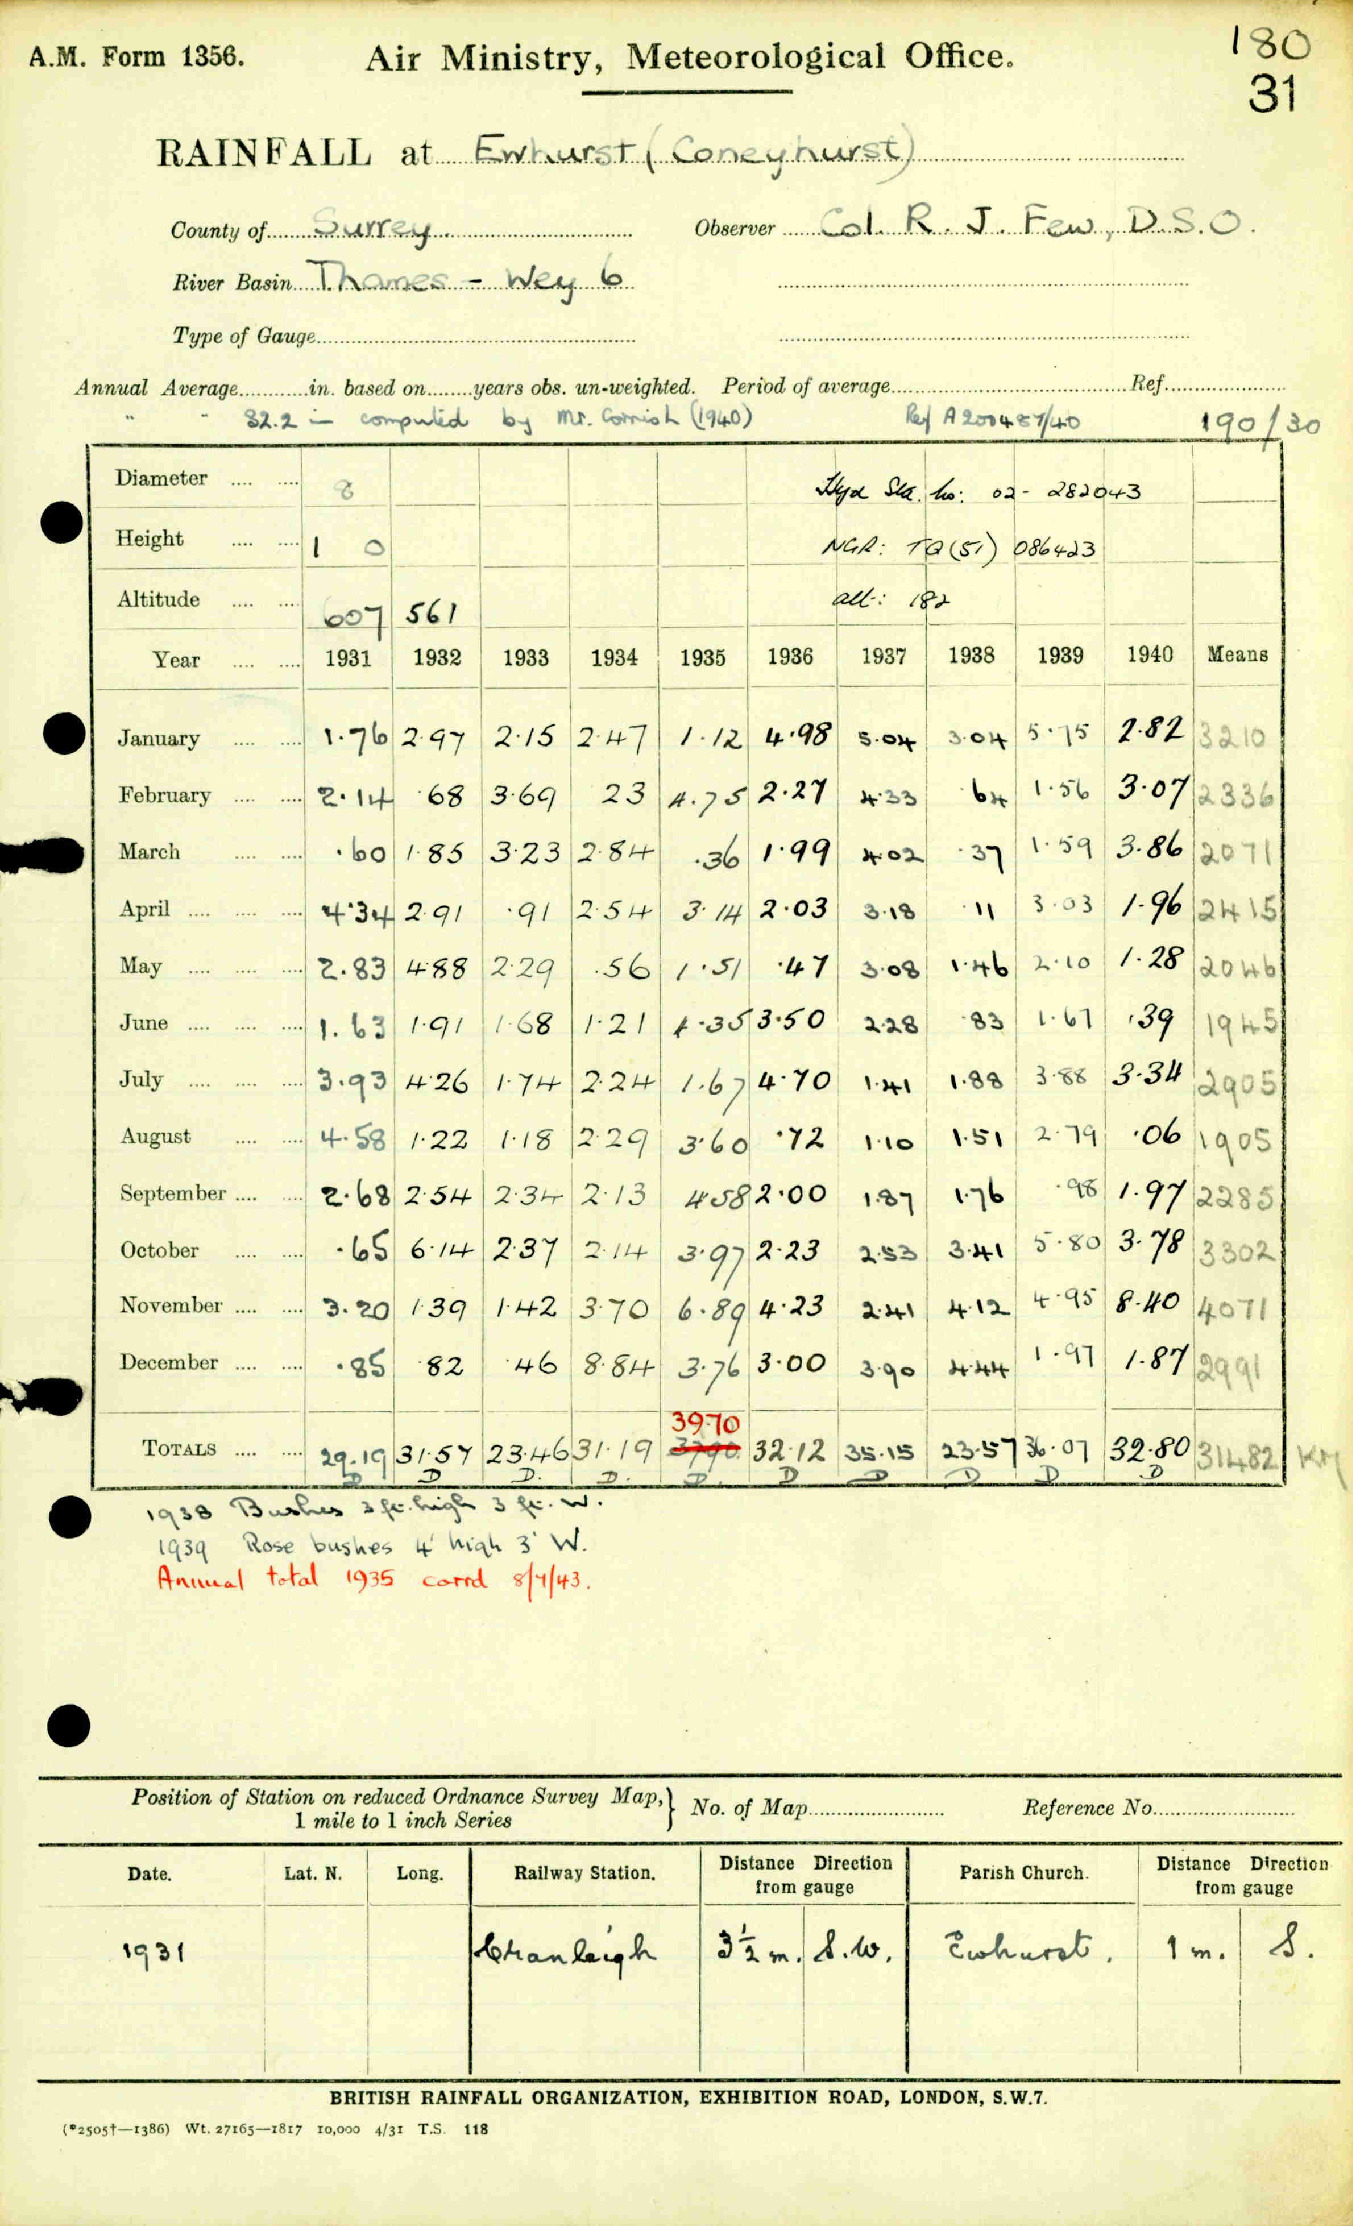 A.M. Form 1356. Air Ministry, Meteorological Office. 180
31
RAINFALL at Ewhurst (Coneyhurst)
County of Surrey. Observer Col. R. J. Few, D.S.O.
River Basin Thames - Wey 6
Type of Gauge
Annual Average in. based on years obs. un-weighted. Period of average Ref.
" " 32.2 in computed by Mr. Cornish (1940) Ref A200487/40 190/30
Diameter 8 Hyd Sta. No: 02- 282043
Height 1 0 NGR: TQ(51) 086423
Altitude 607 561 alt: 182
Year 1931 1932 1933 1934 1935 1936 1937 1938 1939 1940 Means
January 1.76 2.97 2.15 2.47 1.12 4.98 5.04 3.04 5.75 2.82 3210
February 2.14 .68 3.69 23 4.75 2.27 4.33 .64 1.56 3.07 2336
March .60 1.85 3.23 2.84 .36 1.99 4.02 .37 1.59 3.86 2071
April 4.34 2.91 .91 2.54 3.14 2.03 3.18 .11 3.03 1.96 2415
May 2.83 4.88 2.29 .56 1.51 .47 3.08 1.46 2.10 1.28 2046
June 1.63 1.91 1.68 1.21 4.35 3.50 2.28 .83 1.67 .39 1945
July 3.93 4.26 1.74 2.24 1.67 4.70 1.41 1.88 3.88 3.34 2905
August 4.58 1.22 1.18 2.29 3.60 .72 1.10 1.51 2.79 .06 1905
September 2.68 2.54 2.34 2.13 4.58 2.00 1.87 1.76 .98 1.97 2285
October .65 6.14 2.37 2.14 3.97 2.23 2.53 3.41 5.80 3.78 3302
November 3.20 1.39 1.42 3.70 6.89 4.23 2.41 4.12 4.95 8.40 4071
December .85 .82 .46 8.84 3.76 3.00 3.90 4.44 1.97 1.87 2991
3970
TOTALS 29.19 31.57 23.46 31.19 3790 32.12 35.15 23.57 36.07 32.80 31482 KM
D D D. D. D. D D D D D
1938 Bushes 3 ft. high 3 ft. W.
1939 Rose bushes 4' high 3' W.
Annual total 1935 corrd 8/7/43.
Position of Station on reduced Ordnance Survey Map, 1 mile to 1 inch Series } No. of Map Reference No.
Date. Lat. N. Long. Railway Station. Distance Direction from gauge Parish Church. Distance Direction from gauge
1931 Cranleigh 3½ m. S.W. Ewhurst. 1 m. S.
BRITISH RAINFALL ORGANIZATION, EXHIBITION ROAD, LONDON, S.W.7.
(*2505†—1386) Wt. 27165—1817 10,000 4/31 T.S. 118